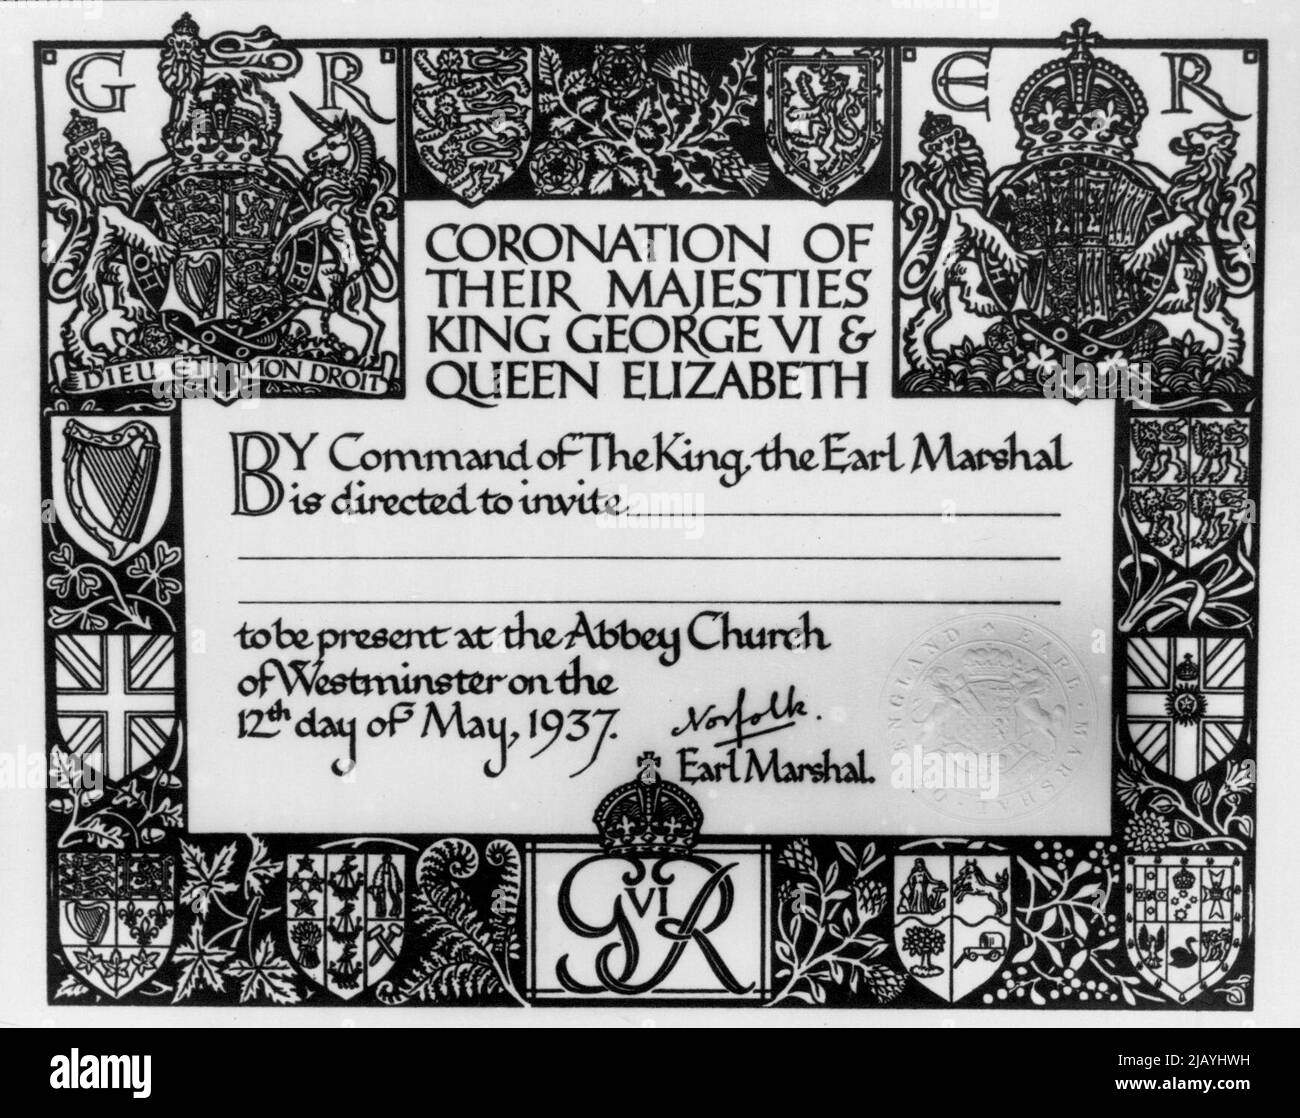 G R
E R
CORONATION OF
THEIR MAJESTIES
KING GEORGE VI &
QUEEN ELIZABETH
DIEU ET MON DROIT
BY Command of The King, the Earl Marshal
is directed to invite
to be present at the Abbey Church
of Westminster on the
12th day of May, 1937.
Norfolk.
Earl Marshal.
EARL · MARSHAL · OF ENGLAND
G VI R
alamy
Image ID: 2JAYHWH
www.alamy.com